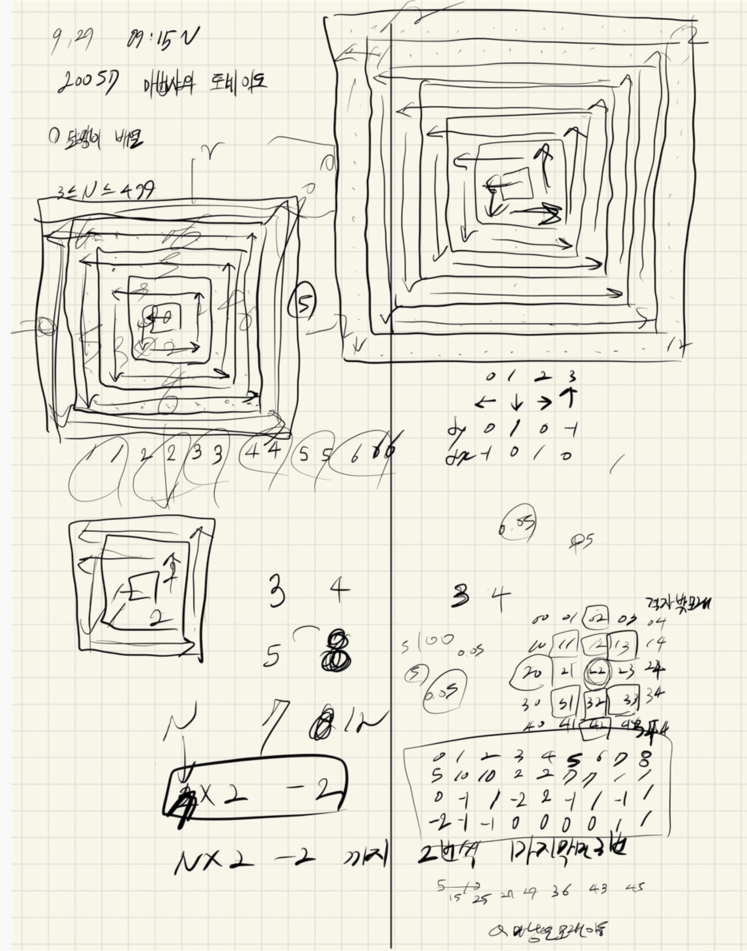 9.29 09:15 N
20057 마법사와 토네이도
달팽이 배열
3 ≤ N ≤ 499
r
5
1 1 2 2 3 3 4 4 5 5 6 6 6
0 1 2 3
← ↓ → ↑
dy 0 1 0 -1
dx -1 0 1 0
0.05
3 4
5 8
N 7 12
N×2 -2
N×2 -2 까지 2번씩 마지막만 3번
3 4
격자 밖 모래
00 01 02 03 04
10 11 12 13 14
20 21 22 23 24
30 31 32 33 34
5 100 0.05
5
0.05
0 1 2 3 4 5 6 7 8
5 10 10 2 2 7 7 1 1
0 -1 1 -2 2 -1 1 -1 1
-2 -1 -1 0 0 0 0 1 1
5 15 25 29 36 43 45